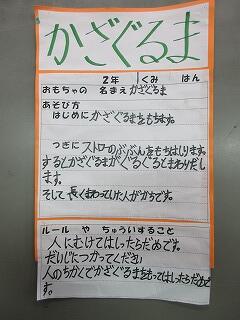 かざぐるま
2年 1くみ はん
おもちゃの 名まえ かざぐるま
あそび方
はじめにかざぐるまをもちます。
つぎにストローのぶぶんをもちはしります。
するとかざぐるまがぐるぐるとまわりだし
ます。
そして長くまわっていた人がかちです。
ルール や ちゅういすること
人にむけてはしったらだめです。
だいじにつかってください
人のちかくでかざぐるまをもってはしったらだめで
す。